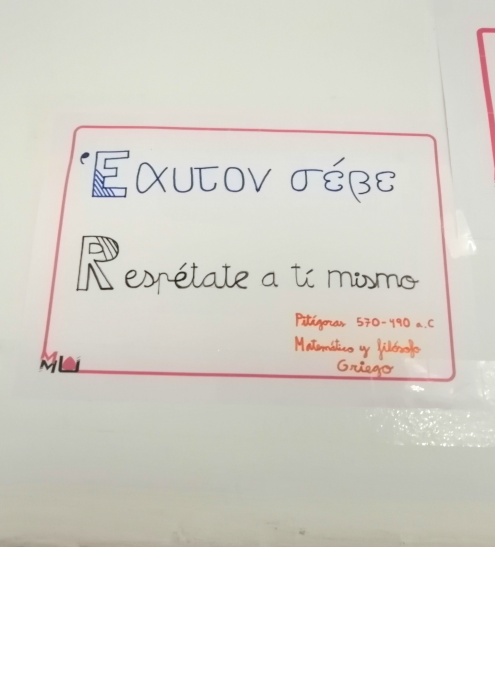 Ἑαυτον σέβε
Respétate a tí mismo
Pitágoras 570-490 a.C
Matemático y filósofo
Griego
MW